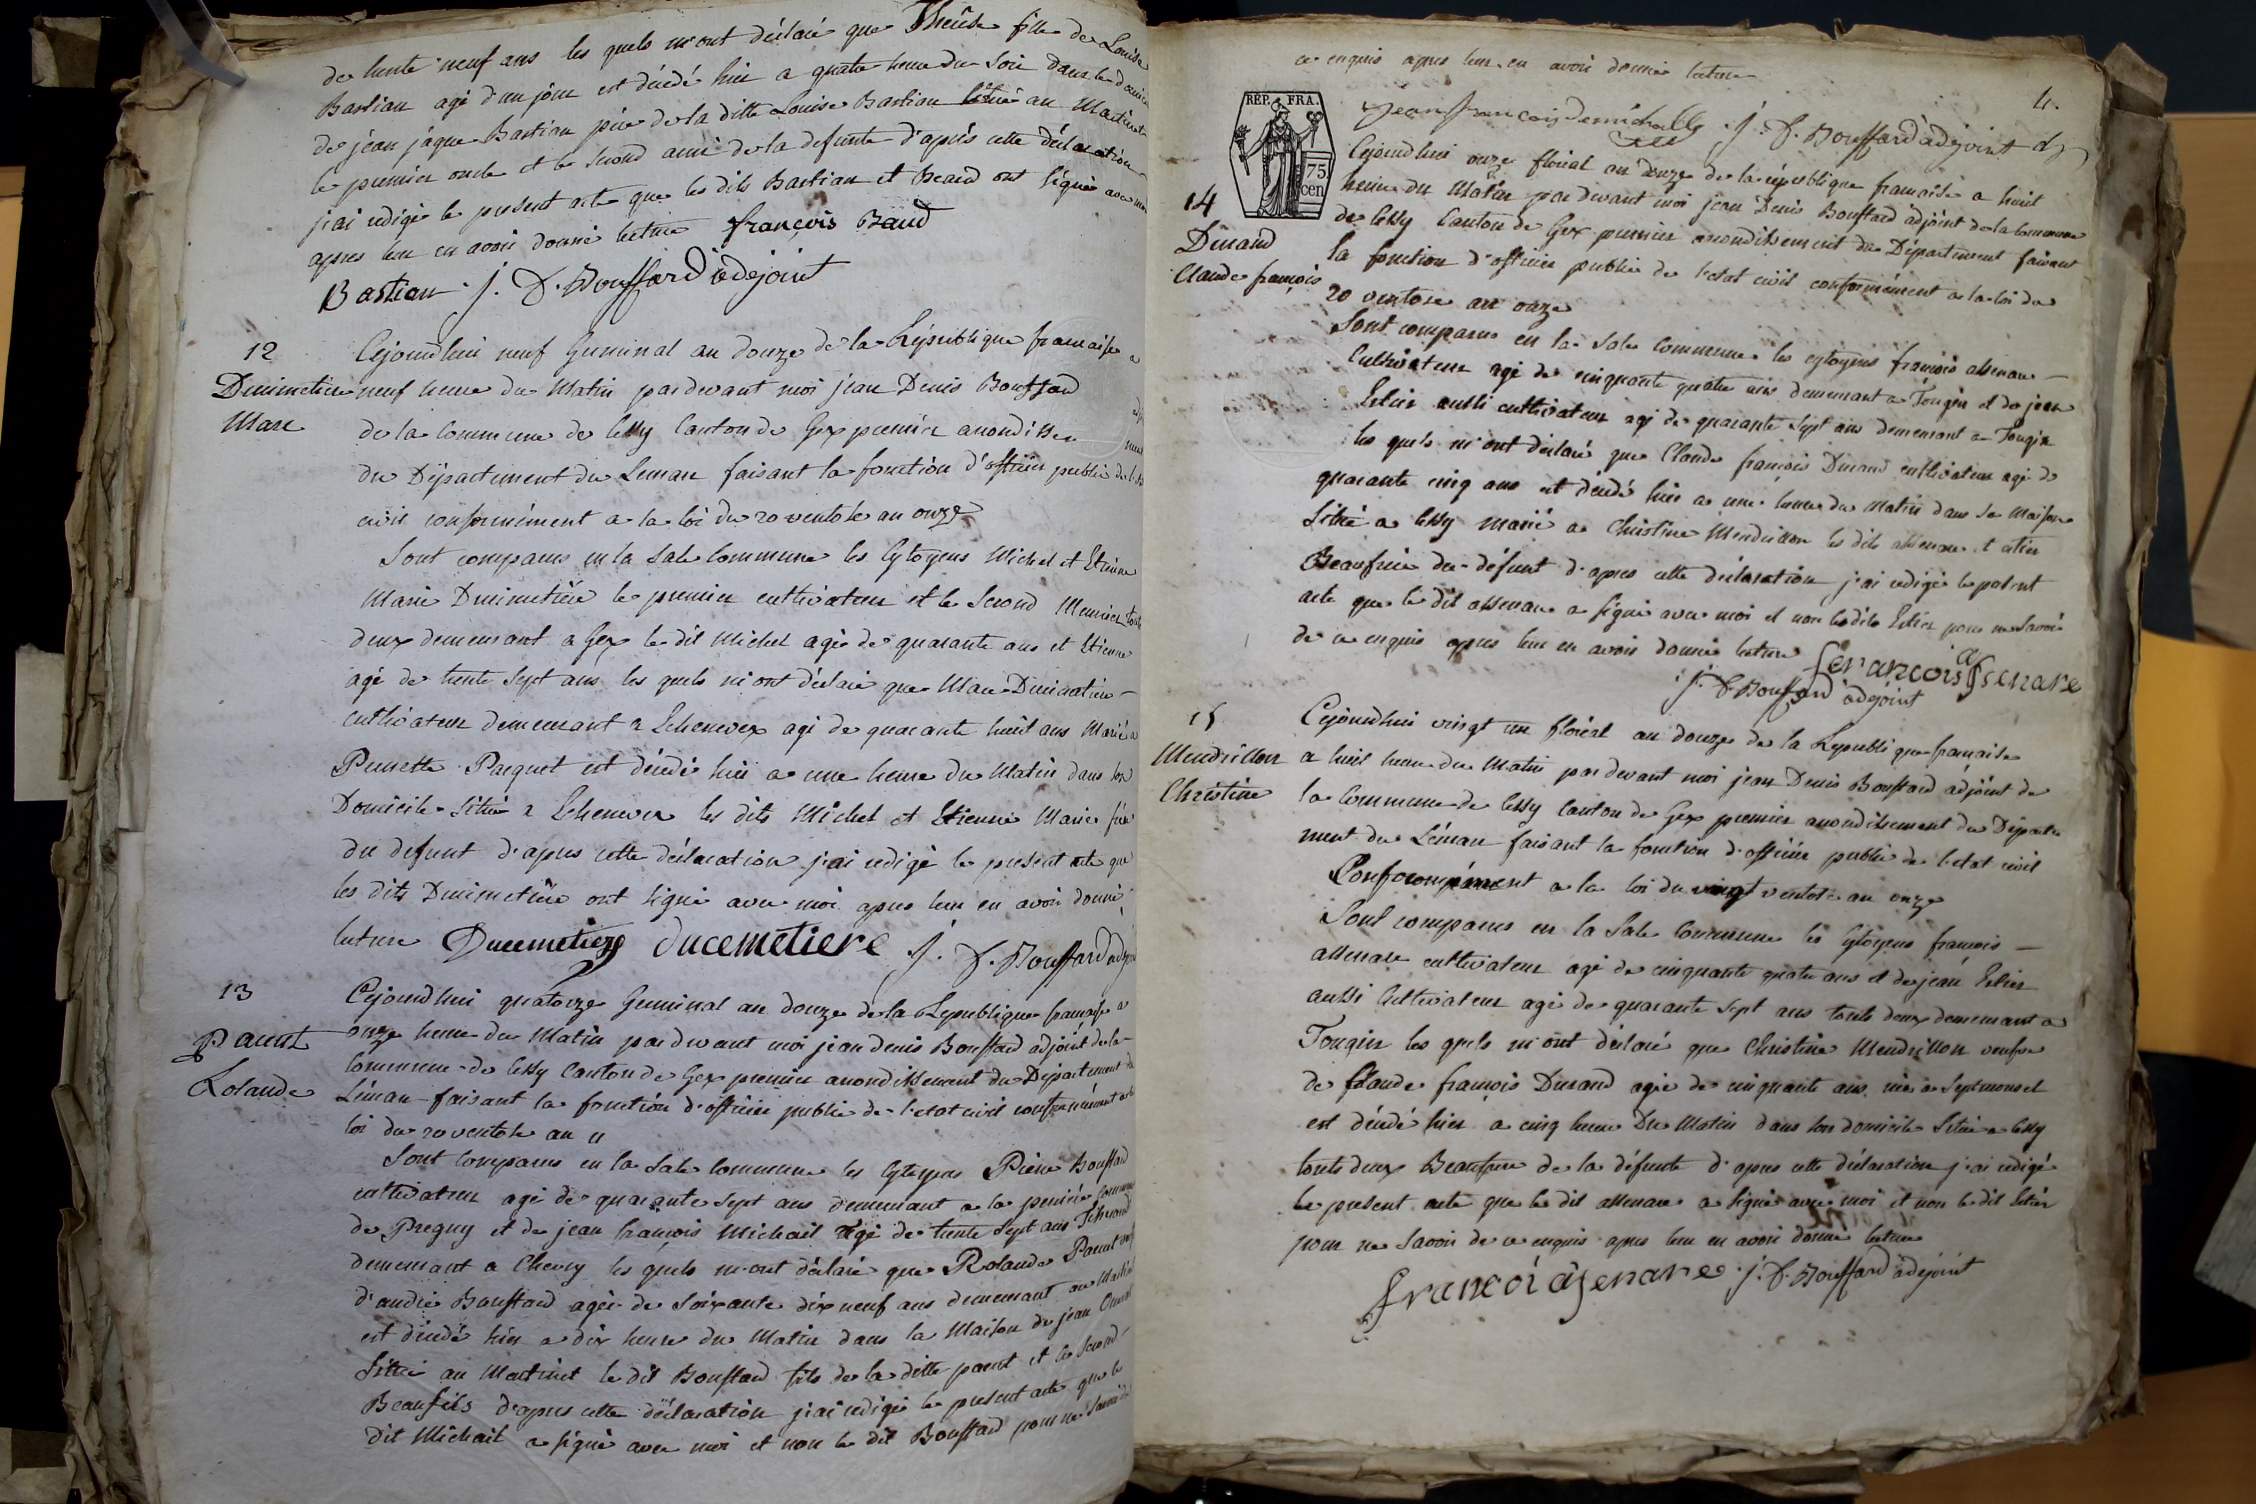 de trente neuf ans les quels m'ont déclaré que Thérèse fille de Louise
Bastian agé d'un jour est décédé hier a quatre heure du Soir dans le domicile
de jean jâque Bastian père de la ditte Louise Bastian Situé au Martinet
le premier oncle et le Second ami de la defunte d'après cette déclaration
j'ai redigé le present acte que les dits Bastian et Beaud ont Signé avec moi
apres leur en avoir donné lecture françois Baud
Bastian J. D. Bouffard adejoint
12
Ducimetière
Marc
Cejourdhui neuf Germinal an douze de la République française a
neuf heure du Matin pardevant moi jean Denis Bouffard
de la Commune de Cessy Canton de Gex premier arrondisse
du Département du Leman faisant la fonction d'officier public de l'état
civil conformément a la loi du 20 ventose an onze
Sont comparus en la Sale Commune les Cytoyens Michel et Etienne
Marie Ducimetière le premier cultivateur et le Second Meunier touts
deux demeurant a Gex le dit Michel agé de quarante ans et Etienne
agé de trente Sept ans les quels m'ont déclaré que Marc Ducimetière
cultivateur demeurant a Echenevex agé de quarante huit ans Marié a
Pernette Pacquet est décédé hier a une heure du Matin dans son
Domicile Situé a Echenevex les dits Michel et Etienne Marie frère
du defunt d'apres cette déclaration j'ai redigé le present acte que
les dits Ducimetière ont Signé avec moi apres leur en avoir donné
lecture Ducemetiere ducemetiere J. D. Bouffard adejoint
13
Parent
Rolande
Cejourdhui quatorze Germinal an douze de la République française a
onze heure du Matin pardevant moi jean denis Bouffard adjoint de la
Commune de Cessy Canton de Gex premier arrondissement du Département du
Léman faisant la fonction d'officier public de l'etat civil conformément a la
loi du 20 ventose an 11
Sont Comparus en la Sale Commune les Cytoyens Pierre Bouffard
cultivateur agé de quarante Sept ans demeurant a la
de Pregny et de jean françois Michail agé de trente Sept ans
demeurant a Chevry les quels m'ont déclaré que Rolande Parent
d'andré Bouffard agée de Soixante dix neuf ans demeurant au Martinet
est décédé hier a dix heure du Matin dans la Maison de jean
Situé au Martinet le dit Bouffard fils de la ditte parent et le Second
Beaufils d'apres cette déclaration j'ai redigé le present acte que le
dit Michail a Signé avec moi et non le dit Bouffard pour ne Savoir de
4.
ce enquis apres leur en avoir donné lecture
jean francois J. D. Bouffard adejoint
REP. FRA.
75
cen
14
Durand
Claude françois
Cejourdhui onze floréal an douze de la république française a huit
heure du Matin pardevant moi jean Denis Bouffard adjoint de la Commune
de Cessy Canton de Gex premier arrondissement du Département faisant
la fonction d'officier public de l'etat civil conformément a la loi du
20 ventose an onze
Sont comparus en la Sale Commune les cytoyens françois assenare
Cultivateur agé de cinquante quatre ans demeurant a Tougin et de jean
Estier aussi cultivateur agé de quarante Sept ans demeurant a Tougin
les quels m'ont déclaré que Claude françois Durand cultivateur agé de
quarante cinq ans est décédé hier a une heure du Matin dans Sa Maison
Situé a Cessy marié a Christine Mendrillon les dits assenare et estier
Beaufrère du défunt d'apres cette déclaration j'ai redigé le present
acte que le dit assenare a Signé avec moi et non le dit Estier pour ne Savoir
de ce enquis apres leur en avoir donné lecture francois assenare
J. D. Bouffard adejoint
15
Mendrillon
Christine
Cejourdhui vingt un floréal an douze de la République française
a huit heure du Matin pardevant moi jean Denis Bouffard adjoint de
la Commune de Cessy Canton de Gex premier arrondissement du Départe
ment du Léman faisant la fonction d'officier public de l'etat civil
Conformément a la loi du vingt ventose an onze
Sont comparus en la Sale Commune les Cytoyens françois
assenare cultivateur agé de cinquante quatre ans et de jean Estier
aussi Cultivateur agé de quarante Sept ans touts deux demeurant a
Tougin les quels m'ont déclaré que Christine Mendrillon veufve
de Claude françois Durand agée de cinquante ans née a Septmoncel
est décédé hier a cinq heure Du Matin dans Son domicile Situé a Cessy
touts deux Beaufrere de la défunte d'apres cette déclaration j'ai redigé
le present acte que le dit assenare a Signé avec moi et non le dit Estier
pour ne Savoir de ce enquis apres leur en avoir donné lecture
françoi assenare J. D. Bouffard adejoint